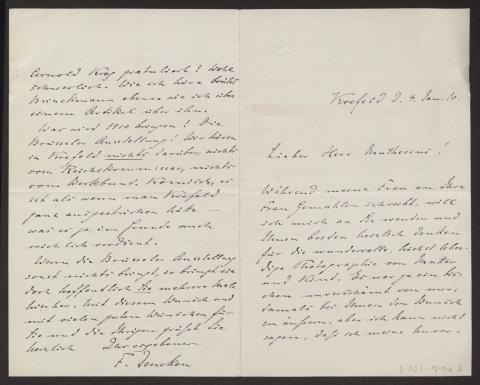 Krefeld d. 4. Jan. 10.
Lieber Herr Muthesius!
Während meine Frau an Ihre
Frau Gemahlin schreibt, will
ich mich an Sie wenden und
Ihnen beiden herzlich danken
für die wundervolle, höchst leben-
dige Photographie von Mutter
und Kind. Es war ja ein bis-
chen unverschämt von mir,
damals bei Ihnen den Wunsch
zu äussern, aber ich kann nicht
sagen, dass ich meine Unver-
Arnold Krog gratuliert? Wohl
schwerlich. Wie ich höre brütet
Brinckmann ebenso wie ich über
einem Artikel über ihn.
Was wird 1910 bringen? Die
Brüsseler Ausstellung? Wir hören
in Krefeld nichts darüber, nichts
vom Reichskommissar, nichts
vom Werkbund. Komisch, es
ist als wenn man Krefeld
ganz ausgestrichen hätte –
was es ja im Grunde auch
reichlich verdient.
Wenn die Brüsseler Ausstellung
sonst nichts bringt, so bringt sie
doch hoffentlich Sie mehrere Male
hierher. Mit diesem Wunsch und
mit vielen guten Wünschen für
Sie und die Ihrigen grüsst Sie
herzlich Ihr ergebener
F. Deneken